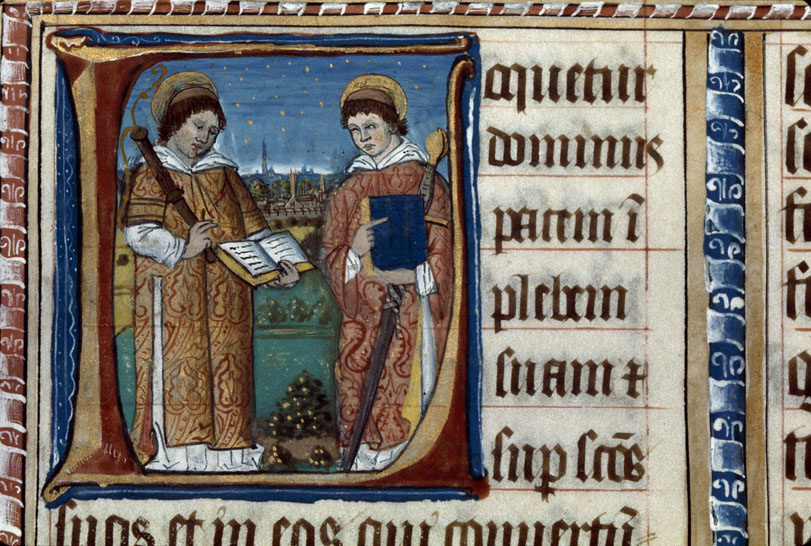 Loquetur
dominus
pacem ī
plebem
suam ⁊
sup sctōs
suos et in eos qui conuertū